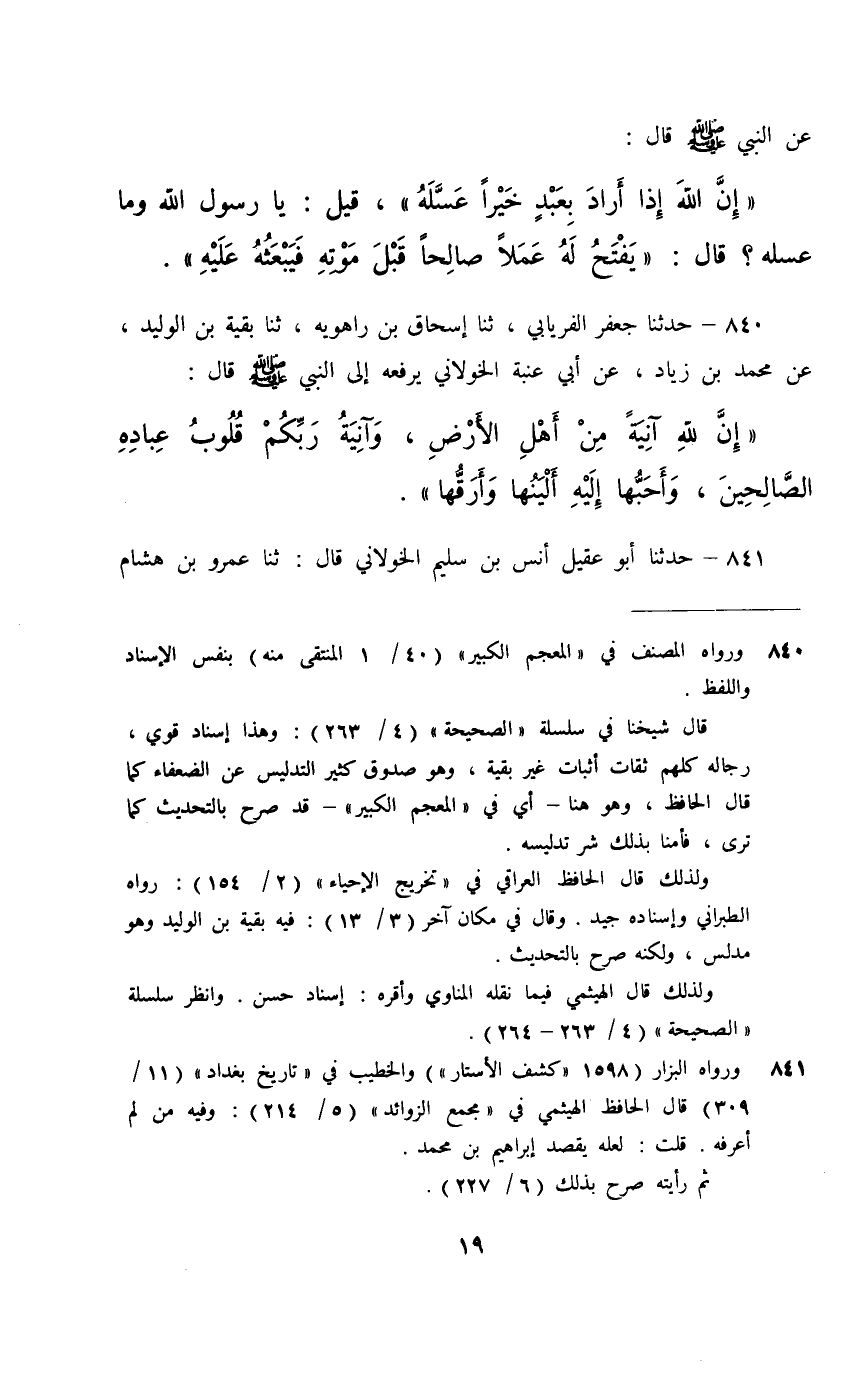 عن النبي ﷺ قال :
« إِنَّ اللهَ إِذا أَرادَ بِعَبْدٍ خَيْراً عَسَّلَهُ » ، قيل : يا رسول الله وما
عسله ؟ قال : « يَفْتَحُ لَهُ عَمَلاً صالِحاً قَبْلَ مَوْتِهِ فَيَبْعَثُهُ عَلَيْهِ » .
٨٤٠ – حدثنا جعفر الفريابي ، ثنا إسحاق بن راهويه ، ثنا بقية بن الوليد ،
عن محمد بن زياد ، عن أبي عنبة الخولاني يرفعه إلى النبي ﷺ قال :
« إِنَّ للهِ آنِيَةً مِنْ أَهْلِ الأَرْضِ ، وَآنِيَةُ رَبِّكُمْ قُلُوبُ عِبادِهِ
الصَّالِحِينَ ، وَأَحَبُّها إِلَيْهِ أَلْيَنُها وَأَرَقُّها » .
٨٤١ – حدثنا أبو عقيل أنس بن سليم الخولاني قال : ثنا عمرو بن هشام
٨٤٠ ورواه المصنف في « المعجم الكبير » ( ٤٠/ ١ المنتقى منه ) بنفس الإسناد
واللفظ .
قال شيخنا في سلسلة « الصحيحة » ( ٤/ ٢٦٣ ) : وهذا إسناد قوي ،
رجاله كلهم ثقات أثبات غير بقية ، وهو صدوق كثير التدليس عن الضعفاء كما
قال الحافظ ، وهو هنا – أي في « المعجم الكبير » – قد صرح بالتحديث كما
ترى ، فأمنا بذلك شر تدليسه .
ولذلك قال الحافظ العراقي في « تخريج الإحياء » ( ٢/ ١٥٤ ) : رواه
الطبراني وإسناده جيد . وقال في مكان آخر ( ٣/ ١٣ ) : فيه بقية بن الوليد وهو
مدلس ، ولكنه صرح بالتحديث .
ولذلك قال الهيثمي فيما نقله المناوي وأقره : إسناد حسن . وانظر سلسلة
« الصحيحة » ( ٤/ ٢٦٣ – ٢٦٤ ) .
٨٤١ ورواه البزار ( ١٥٩٨ « كشف الأستار » ) والخطيب في « تاريخ بغداد » ( ١١/
٣٠٩ ) قال الحافظ الهيثمي في « مجمع الزوائد » ( ٥/ ٢١٤ ) : وفيه من لم
أعرفه . قلت : لعله يقصد إبراهيم بن محمد .
ثم رأيته صرح بذلك ( ٦/ ٢٢٧ ) .
١٩